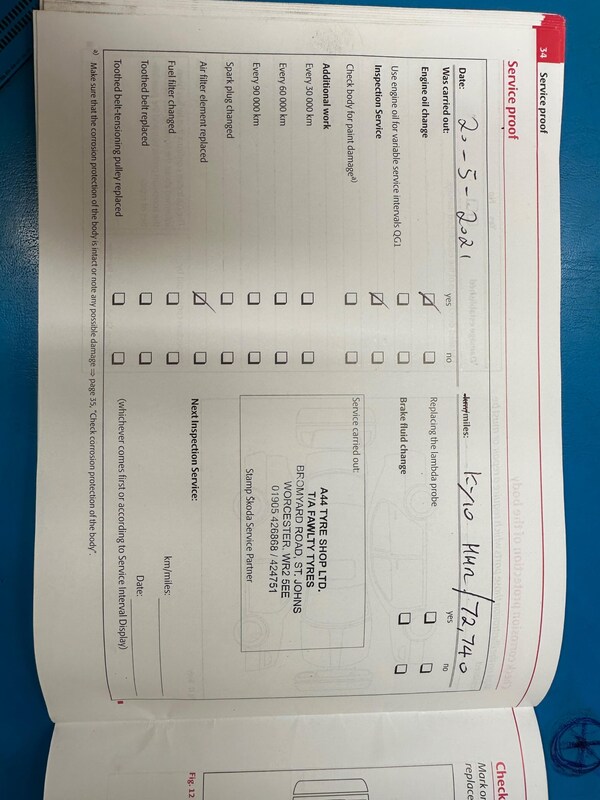 34 Service proof
Service proof
Date: 20-5-2021
km/miles: KY10 HUA/72,740
Was carried out: yes no
Engine oil change
Use engine oil for variable service intervals QG1
Inspection Service
Check body for paint damageᵃ⁾
Additional work
Every 30 000 km
Every 60 000 km
Every 90 000 km
Spark plug changed
Air filter element replaced
Fuel filter changed
Toothed belt replaced
Toothed belt-tensioning pulley replaced
yes no
Replacing the lambda probe
Brake fluid change
Service carried out:
A44 TYRE SHOP LTD.
T/A FAWLTY TYRES
BROMYARD ROAD, ST. JOHNS
WORCESTER. WR2 5EE
01905 426868 / 424751
Stamp Škoda Service Partner
Next Inspection Service:
km/miles:
Date:
(whichever comes first or according to Service Interval Display)
ᵃ⁾ Make sure that the corrosion protection of the body is intact or note any possible damage ⇒ page 35, "Check corrosion protection of the body".
Check
Mark or
replace
Fig. 12